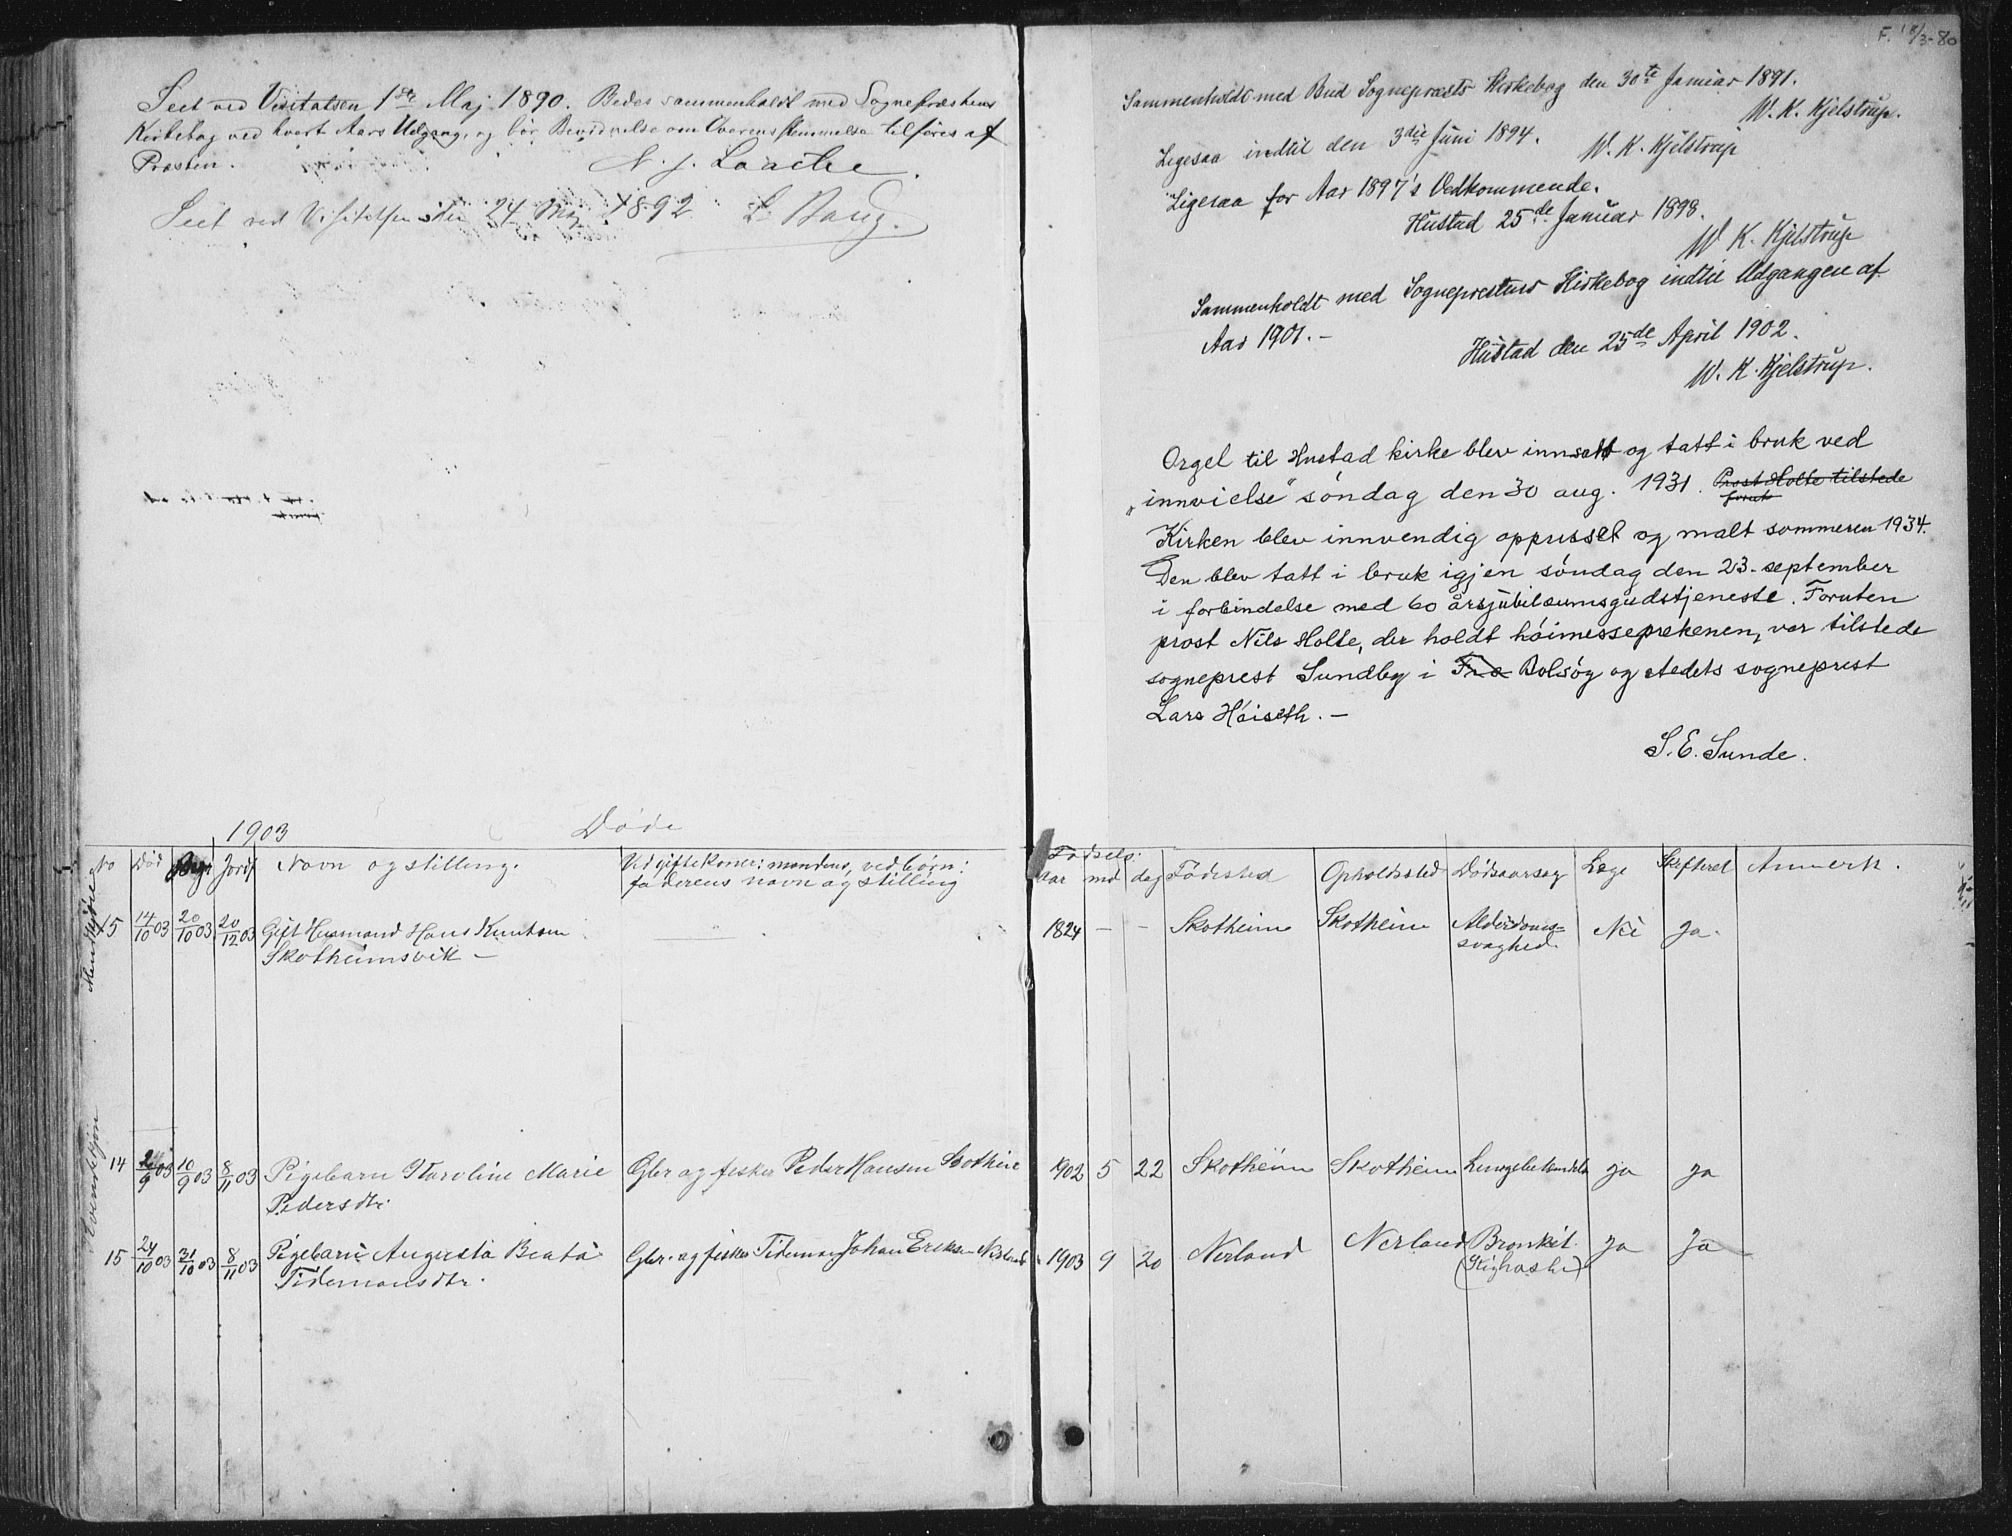 Seet ved Visitatsen 1ste Maj 1890. Bedes sammenholdt med Sognepræstens
Kirkebog ved hvert Aars Udgang, og bør Bevidnelse om Overensstemmelse tilføres af
Præsten.
N. J. Laache.
Seet ved Visitatsen den 24 Maj 1892 L. Bang.
1903 Døde
No Død Begr Jordf Navn og stilling. Ved giftekoner: mandens, ved børn:
faderens navn og stilling
Mandkjøn
15 14/10 03 20/10 03 20/12 03 Gift Husmand Hans Knutsen
Skotheimsvik —
Kvindekjøn
14 2/9 03 10/9 03 8/11 03 Pigebarn Karoline Marie Gbr og fisker Peder Hansen Skotheim
Pedersdtr
15 24/10 03 31/10 03 8/11 03 Pigebarn Augusta Beata Gbr. og fisker Tideman Johan Eriksen Nerland
Tidemansdtr.
F. 18/3-80
Sammenholdt med Bud Sognepræsts Kirkebog den 30te Januar 1891.
W. K. Kjelstrup.
Ligesaa indtil den 3die Juni 1894.
W. K. Kjelstrup
Ligesaa for Aar 1897's Vedkommende.
Hustad 25de Januar 1898.
W. K. Kjelstrup
Sammenholdt med Sogneprestens Kirkebog indtil Udgangen af
Aar 1901. —
Hustad den 25de April 1902.
W. K. Kjelstrup.
Orgel til Hustad kirke blev innsatt og tatt i bruk ved
„innvielse" søndag den 30 aug. 1931. Prost Holte tilstede
forut
Kirken blev innvendig oppusset og malt sommeren 1934.
Den blev tatt i bruk igjen søndag den 23. september
i forbindelse med 60 årsjubileumsgudstjeneste. Foruten
prost Nils Holte, der holdt høimesseprekenen, var tilstede
sogneprest Sundby i Fræ Bolsøy og stedets sogneprest
Lars Høiseth. —
S. E. Sunde.
Fødsels:
aar md dag Fødested Opholdssted Dødsaarsag Læge Skifteret Anmerk.
1824 — — Skotheim Skotheim Alderdoms=
svaghed. Nei Ja.
1902 5 22 Skotheim Skotheim Lungebetændelse ja ja
1903 9 20 Nerland Nerland Bronkit. Ja Ja
(Kighoste)